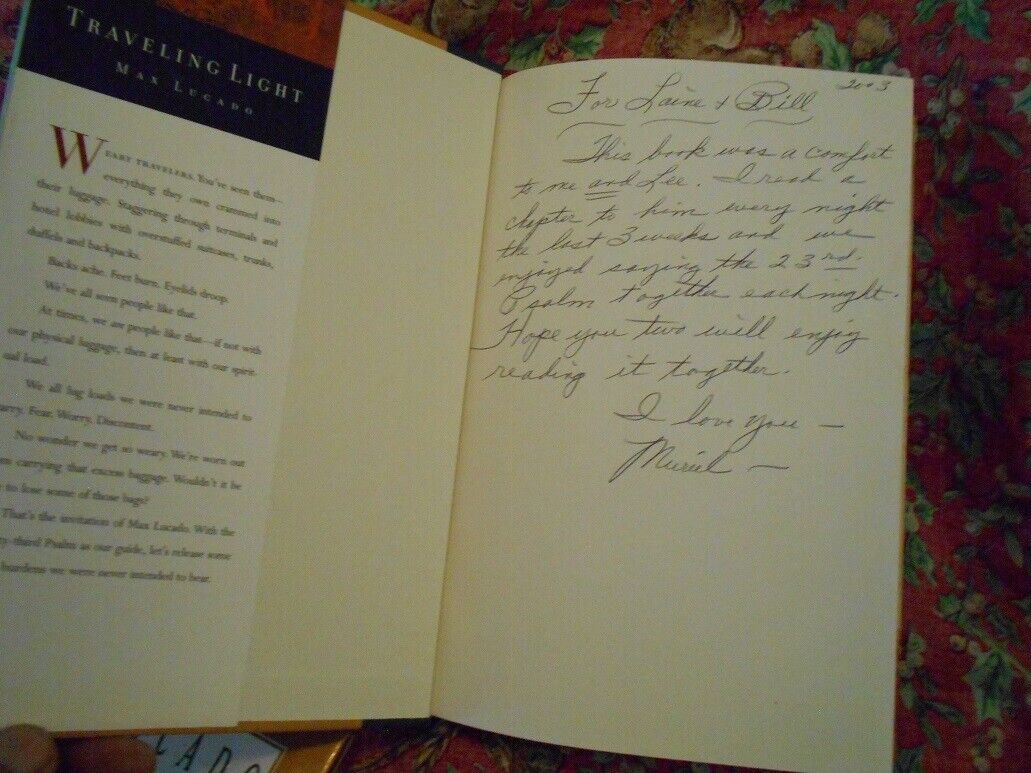 TRAVELING LIGHT
MAX LUCADO
WEARY TRAVELERS. You've seen them—
everything they own crammed into
their luggage. Staggering through terminals and
hotel lobbies with overstuffed suitcases, trunks,
duffels and backpacks.
Backs ache. Feet burn. Eyelids droop.
We've all seen people like that.
At times, we are people like that—if not with
our physical luggage, then at least with our spirit-
ual load.
We all lug loads we were never intended to
arry. Fear. Worry. Discontent.
No wonder we get so weary. We're worn out
carrying that excess baggage. Wouldn't it be
to lose some of those bags?
That's the invitation of Max Lucado. With the
y-third Psalm as our guide, let's release some
burdens we were never intended to bear.
2003
For Laine & Bill
This book was a comfort
to me and Lee. I read a
chapter to him every night
the last 3 weeks and we
enjoyed saying the 23rd.
Psalm together each night.
Hope you two will enjoy
reading it together.
I love you —
Muriel —
ADO